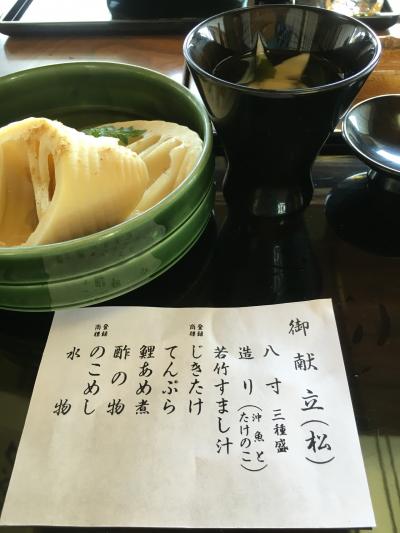 御献立(松)
八寸 三種盛
造り(沖魚とたけのこ)
若竹すまし汁
登録商標 じきたけ
てんぷら
鯉あめ煮
酢の物
登録商標 のこめし
水物